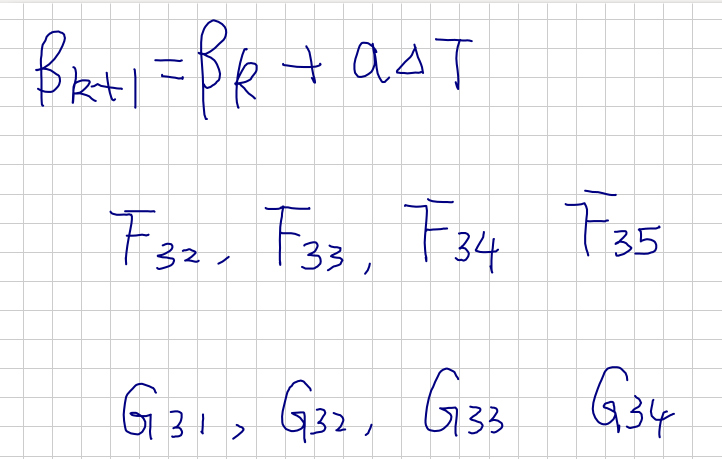 β_{k+1} = β_k + a Δ T
F_{32}, F_{33}, F_{34} F_{35}
G_{31}, G_{32}, G_{33} G_{34}